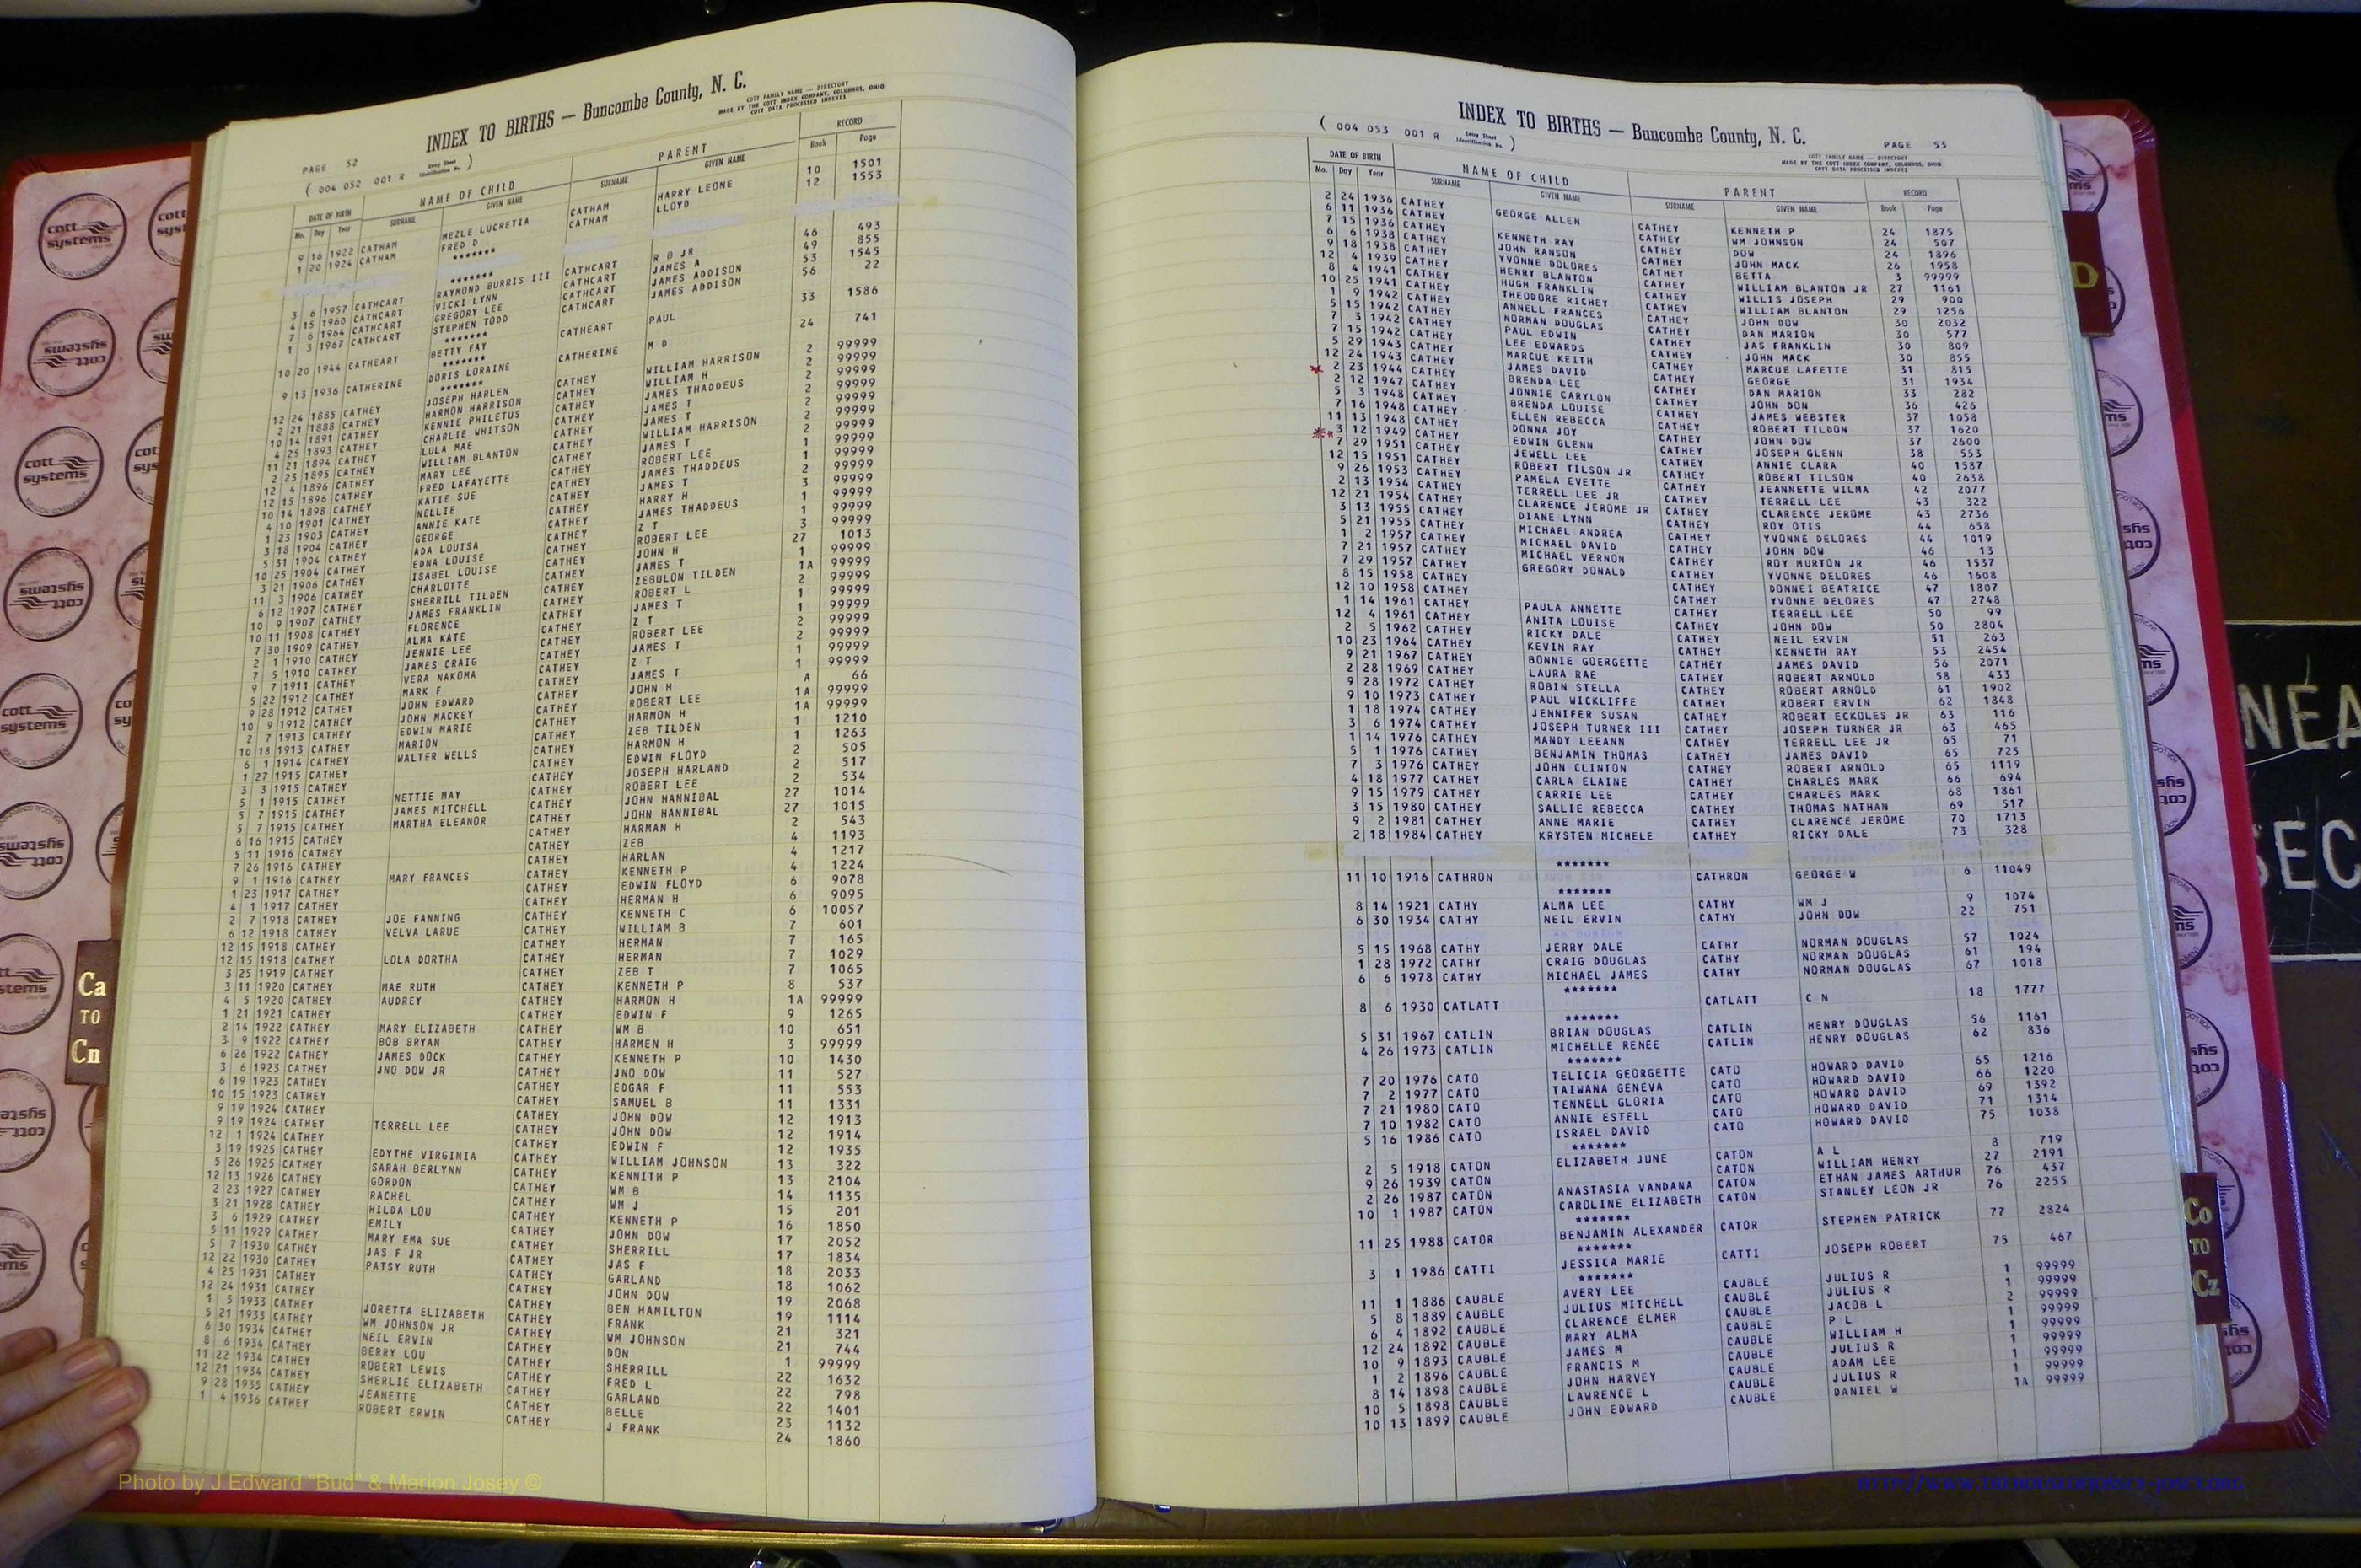 INDEX TO BIRTHS — Buncombe County, N. C.
COTT FAMILY NAME — DIRECTORY
MADE BY THE COTT INDEX COMPANY, COLUMBUS, OHIO
COTT DATA PROCESSED INDEXES
PAGE 52
( 004 052 001 R Entry Sheet Identification No. )
DATE OF BIRTH NAME OF CHILD PARENT RECORD
Mo. Day Year SURNAME GIVEN NAME SURNAME GIVEN NAME Book Page
9 16 1922 CATHAM MEZLE LUCRETIA CATHAM HARRY LEONE 10 1501
1 20 1924 CATHAM FRED D CATHAM LLOYD 12 1553
*******
*******
3 6 1957 CATHCART RAYMOND BURRIS III CATHCART R B JR 46 493
4 15 1960 CATHCART VICKI LYNN CATHCART JAMES A 49 855
7 6 1964 CATHCART GREGORY LEE CATHCART JAMES ADDISON 53 1545
1 3 1967 CATHCART STEPHEN TODD CATHCART JAMES ADDISON 56 22
*******
10 20 1944 CATHEART BETTY FAY CATHEART PAUL 33 1586
*******
9 13 1936 CATHERINE DORIS LORAINE CATHERINE M D 24 741
*******
12 24 1885 CATHEY JOSEPH HARLEN CATHEY WILLIAM HARRISON 2 99999
2 21 1888 CATHEY HARMON HARRISON CATHEY WILLIAM H 2 99999
10 14 1891 CATHEY KENNIE PHILETUS CATHEY JAMES THADDEUS 2 99999
4 25 1893 CATHEY CHARLIE WHITSON CATHEY JAMES T 2 99999
11 21 1894 CATHEY LULA MAE CATHEY JAMES T 2 99999
2 23 1895 CATHEY WILLIAM BLANTON CATHEY WILLIAM HARRISON 2 99999
12 4 1896 CATHEY MARY LEE CATHEY JAMES T 2 99999
12 15 1896 CATHEY FRED LAFAYETTE CATHEY ROBERT LEE 1 99999
10 14 1898 CATHEY KATIE SUE CATHEY JAMES THADDEUS 1 99999
4 10 1901 CATHEY NELLIE CATHEY JAMES T 2 99999
1 23 1903 CATHEY ANNIE KATE CATHEY HARRY H 3 99999
3 18 1904 CATHEY GEORGE CATHEY JAMES THADDEUS 1 99999
5 31 1904 CATHEY ADA LOUISA CATHEY Z T 1 99999
10 25 1904 CATHEY EDNA LOUISE CATHEY ROBERT LEE 3 99999
3 21 1906 CATHEY ISABEL LOUISE CATHEY JOHN H 27 1013
11 3 1906 CATHEY CHARLOTTE CATHEY JAMES T 1 99999
6 12 1907 CATHEY SHERRILL TILDEN CATHEY ZEBULON TILDEN 1A 99999
10 9 1907 CATHEY JAMES FRANKLIN CATHEY ROBERT L 2 99999
10 11 1908 CATHEY FLORENCE CATHEY JAMES T 1 99999
7 30 1909 CATHEY ALMA KATE CATHEY Z T 1 99999
2 1 1910 CATHEY JENNIE LEE CATHEY ROBERT LEE 2 99999
7 5 1910 CATHEY JAMES CRAIG CATHEY JAMES T 2 99999
9 7 1911 CATHEY VERA NAKOMA CATHEY Z T 1 99999
5 22 1912 CATHEY MARK F CATHEY JAMES T 1 99999
9 28 1912 CATHEY JOHN EDWARD CATHEY JOHN H A 66
10 9 1912 CATHEY JOHN MACKEY CATHEY ROBERT LEE 1A 99999
2 7 1913 CATHEY EDWIN MARIE CATHEY HARMON H 1A 99999
10 18 1913 CATHEY MARION CATHEY ZEB TILDEN 1 1210
6 1 1914 CATHEY WALTER WELLS CATHEY HARMON H 1 1263
1 27 1915 CATHEY CATHEY EDWIN FLOYD 2 505
3 3 1915 CATHEY CATHEY JOSEPH HARLAND 2 517
5 1 1915 CATHEY NETTIE MAY CATHEY ROBERT LEE 2 534
5 7 1915 CATHEY JAMES MITCHELL CATHEY JOHN HANNIBAL 27 1014
5 7 1915 CATHEY MARTHA ELEANOR CATHEY JOHN HANNIBAL 27 1015
6 16 1915 CATHEY CATHEY HARMAN H 2 543
5 11 1916 CATHEY CATHEY ZEB 4 1193
7 26 1916 CATHEY CATHEY HARLAN 4 1217
9 1 1916 CATHEY MARY FRANCES CATHEY KENNETH P 4 1224
1 23 1917 CATHEY CATHEY EDWIN FLOYD 6 9078
4 1 1917 CATHEY CATHEY HERMAN H 6 9095
2 7 1918 CATHEY JOE FANNING CATHEY KENNETH C 6 10057
6 12 1918 CATHEY VELVA LARUE CATHEY WILLIAM B 7 601
12 15 1918 CATHEY CATHEY HERMAN 7 165
12 15 1918 CATHEY LOLA DORTHA CATHEY HERMAN 7 1029
3 25 1919 CATHEY CATHEY ZEB T 7 1065
3 11 1920 CATHEY MAE RUTH CATHEY KENNETH P 8 537
4 5 1920 CATHEY AUDREY CATHEY HARMON H 1A 99999
1 21 1921 CATHEY CATHEY EDWIN F 9 1265
2 14 1922 CATHEY MARY ELIZABETH CATHEY WM B 10 651
3 9 1922 CATHEY BOB BRYAN CATHEY HARMEN H 3 99999
6 26 1922 CATHEY JAMES DOCK CATHEY KENNETH P 10 1430
3 6 1923 CATHEY JNO DOW JR CATHEY JNO DOW 11 527
6 19 1923 CATHEY CATHEY EDGAR F 11 553
10 15 1923 CATHEY CATHEY SAMUEL B 11 1331
9 19 1924 CATHEY CATHEY JOHN DOW 12 1913
9 19 1924 CATHEY TERRELL LEE CATHEY JOHN DOW 12 1914
12 1 1924 CATHEY CATHEY EDWIN F 12 1935
3 19 1925 CATHEY EDYTHE VIRGINIA CATHEY WILLIAM JOHNSON 13 322
5 26 1925 CATHEY SARAH BERLYNN CATHEY KENNITH P 13 2104
12 13 1926 CATHEY GORDON CATHEY WM B 14 1135
2 23 1927 CATHEY RACHEL CATHEY WM J 15 201
3 21 1928 CATHEY HILDA LOU CATHEY KENNETH P 16 1850
3 6 1929 CATHEY EMILY CATHEY JOHN DOW 17 2052
5 11 1929 CATHEY MARY EMA SUE CATHEY SHERRILL 17 1834
5 7 1930 CATHEY JAS F JR CATHEY JAS F 18 2033
12 22 1930 CATHEY PATSY RUTH CATHEY GARLAND 18 1062
4 25 1931 CATHEY CATHEY JOHN DOW 19 2068
12 24 1931 CATHEY CATHEY BEN HAMILTON 19 1114
1 5 1933 CATHEY JORETTA ELIZABETH CATHEY FRANK 21 321
5 21 1933 CATHEY WM JOHNSON JR CATHEY WM JOHNSON 21 744
6 30 1934 CATHEY NEIL ERVIN CATHEY DON 1 99999
8 6 1934 CATHEY BERRY LOU CATHEY SHERRILL 22 1632
11 22 1934 CATHEY ROBERT LEWIS CATHEY FRED L 22 798
12 21 1934 CATHEY SHERLIE ELIZABETH CATHEY GARLAND 22 1401
9 28 1935 CATHEY JEANETTE CATHEY BELLE 23 1132
1 4 1936 CATHEY ROBERT ERWIN CATHEY J FRANK 24 1860
INDEX TO BIRTHS — Buncombe County, N. C.
( 004 053 001 R Entry Sheet Identification No. )
PAGE 53
COTT FAMILY NAME — DIRECTORY
MADE BY THE COTT INDEX COMPANY, COLUMBUS, OHIO
COTT DATA PROCESSED INDEXES
DATE OF BIRTH NAME OF CHILD PARENT RECORD
Mo. Day Year SURNAME GIVEN NAME SURNAME GIVEN NAME Book Page
2 24 1936 CATHEY GEORGE ALLEN CATHEY KENNETH P 24 1875
6 11 1936 CATHEY CATHEY WM JOHNSON 24 507
7 15 1936 CATHEY KENNETH RAY CATHEY DOW 24 1896
6 6 1938 CATHEY JOHN RANSON CATHEY JOHN MACK 26 1958
9 18 1938 CATHEY YVONNE DOLORES CATHEY BETTA 3 99999
12 4 1939 CATHEY HENRY BLANTON CATHEY WILLIAM BLANTON JR 27 1161
8 4 1941 CATHEY HUGH FRANKLIN CATHEY WILLIS JOSEPH 29 900
10 25 1941 CATHEY THEODORE RICHEY CATHEY WILLIAM BLANTON 29 1256
1 9 1942 CATHEY ANNELL FRANCES CATHEY JOHN DOW 30 2032
5 15 1942 CATHEY NORMAN DOUGLAS CATHEY DAN MARION 30 577
7 3 1942 CATHEY PAUL EDWIN CATHEY JAS FRANKLIN 30 809
7 15 1942 CATHEY LEE EDWARDS CATHEY JOHN MACK 30 855
5 29 1943 CATHEY MARCUE KEITH CATHEY MARCUE LAFETTE 31 815
12 24 1943 CATHEY JAMES DAVID CATHEY GEORGE 31 1934
2 23 1944 CATHEY BRENDA LEE CATHEY DAN MARION 33 282
2 12 1947 CATHEY JONNIE CARYLON CATHEY JOHN DON 36 426
5 3 1948 CATHEY BRENDA LOUISE CATHEY JAMES WEBSTER 37 1058
7 16 1948 CATHEY ELLEN REBECCA CATHEY ROBERT TILDON 37 1620
11 13 1948 CATHEY DONNA JOY CATHEY JOHN DOW 37 2600
3 12 1949 CATHEY EDWIN GLENN CATHEY JOSEPH GLENN 38 553
7 29 1951 CATHEY JEWELL LEE CATHEY ANNIE CLARA 40 1587
12 15 1951 CATHEY ROBERT TILSON JR CATHEY ROBERT TILSON 40 2638
9 26 1953 CATHEY PAMELA EVETTE CATHEY JEANNETTE WILMA 42 2077
2 13 1954 CATHEY TERRELL LEE JR CATHEY TERRELL LEE 43 322
12 21 1954 CATHEY CLARENCE JEROME JR CATHEY CLARENCE JEROME 43 2736
3 13 1955 CATHEY DIANE LYNN CATHEY ROY OTIS 44 658
5 21 1955 CATHEY MICHAEL ANDREA CATHEY YVONNE DELORES 44 1019
1 2 1957 CATHEY MICHAEL DAVID CATHEY JOHN DOW 46 13
7 21 1957 CATHEY MICHAEL VERNON CATHEY ROY MURTON JR 46 1537
7 29 1957 CATHEY GREGORY DONALD CATHEY YVONNE DELORES 46 1608
8 15 1958 CATHEY CATHEY DONNEI BEATRICE 47 1807
12 10 1958 CATHEY CATHEY YVONNE DELORES 47 2748
1 14 1961 CATHEY PAULA ANNETTE CATHEY TERRELL LEE 50 99
12 4 1961 CATHEY ANITA LOUISE CATHEY JOHN DOW 50 2804
2 5 1962 CATHEY RICKY DALE CATHEY NEIL ERVIN 51 263
10 23 1964 CATHEY KEVIN RAY CATHEY KENNETH RAY 53 2454
9 21 1967 CATHEY BONNIE GOERGETTE CATHEY JAMES DAVID 56 2071
2 28 1969 CATHEY LAURA RAE CATHEY ROBERT ARNOLD 58 433
9 28 1972 CATHEY ROBIN STELLA CATHEY ROBERT ARNOLD 61 1902
9 10 1973 CATHEY PAUL WICKLIFFE CATHEY ROBERT ERVIN 62 1848
1 18 1974 CATHEY JENNIFER SUSAN CATHEY ROBERT ECKOLES JR 63 116
3 6 1974 CATHEY JOSEPH TURNER III CATHEY JOSEPH TURNER JR 63 465
1 14 1976 CATHEY MANDY LEEANN CATHEY TERRELL LEE JR 65 71
5 1 1976 CATHEY BENJAMIN THOMAS CATHEY JAMES DAVID 65 725
7 3 1976 CATHEY JOHN CLINTON CATHEY ROBERT ARNOLD 65 1119
4 18 1977 CATHEY CARLA ELAINE CATHEY CHARLES MARK 66 694
9 15 1979 CATHEY CARRIE LEE CATHEY CHARLES MARK 68 1861
3 15 1980 CATHEY SALLIE REBECCA CATHEY THOMAS NATHAN 69 517
9 2 1981 CATHEY ANNE MARIE CATHEY CLARENCE JEROME 70 1713
2 18 1984 CATHEY KRYSTEN MICHELE CATHEY RICKY DALE 73 328
*******
11 10 1916 CATHRON CATHRON GEORGE W 6 11049
*******
8 14 1921 CATHY ALMA LEE CATHY WM J 9 1074
6 30 1934 CATHY NEIL ERVIN CATHY JOHN DOW 22 751
5 15 1968 CATHY JERRY DALE CATHY NORMAN DOUGLAS 57 1024
1 28 1972 CATHY CRAIG DOUGLAS CATHY NORMAN DOUGLAS 61 194
6 6 1978 CATHY MICHAEL JAMES CATHY NORMAN DOUGLAS 67 1018
*******
8 6 1930 CATLATT CATLATT C N 18 1777
*******
5 31 1967 CATLIN BRIAN DOUGLAS CATLIN HENRY DOUGLAS 56 1161
4 26 1973 CATLIN MICHELLE RENEE CATLIN HENRY DOUGLAS 62 836
*******
7 20 1976 CATO TELICIA GEORGETTE CATO HOWARD DAVID 65 1216
7 2 1977 CATO TAIWANA GENEVA CATO HOWARD DAVID 66 1220
7 21 1980 CATO TENNELL GLORIA CATO HOWARD DAVID 69 1392
7 10 1982 CATO ANNIE ESTELL CATO HOWARD DAVID 71 1314
5 16 1986 CATO ISRAEL DAVID CATO HOWARD DAVID 75 1038
*******
2 5 1918 CATON ELIZABETH JUNE CATON A L 8 719
9 26 1939 CATON CATON WILLIAM HENRY 27 2191
2 26 1987 CATON ANASTASIA VANDANA CATON ETHAN JAMES ARTHUR 76 437
10 1 1987 CATON CAROLINE ELIZABETH CATON STANLEY LEON JR 76 2255
*******
11 25 1988 CATOR BENJAMIN ALEXANDER CATOR STEPHEN PATRICK 77 2824
*******
3 1 1986 CATTI JESSICA MARIE CATTI JOSEPH ROBERT 75 467
*******
11 1 1886 CAUBLE AVERY LEE CAUBLE JULIUS R 1 99999
5 8 1889 CAUBLE JULIUS MITCHELL CAUBLE JULIUS R 1 99999
6 4 1892 CAUBLE CLARENCE ELMER CAUBLE JACOB L 2 99999
12 24 1892 CAUBLE MARY ALMA CAUBLE P L 1 99999
10 9 1893 CAUBLE JAMES M CAUBLE WILLIAM H 1 99999
1 2 1896 CAUBLE FRANCIS M CAUBLE JULIUS R 1 99999
8 14 1898 CAUBLE JOHN HARVEY CAUBLE ADAM LEE 1 99999
10 5 1898 CAUBLE LAWRENCE L CAUBLE JULIUS R 1 99999
10 13 1899 CAUBLE JOHN EDWARD CAUBLE DANIEL W 1A 99999
Ca TO Cn
D
Co TO Cz
cott systems
NEA
SEC
Photo by J Edward "Bud" & Marion Josey ©